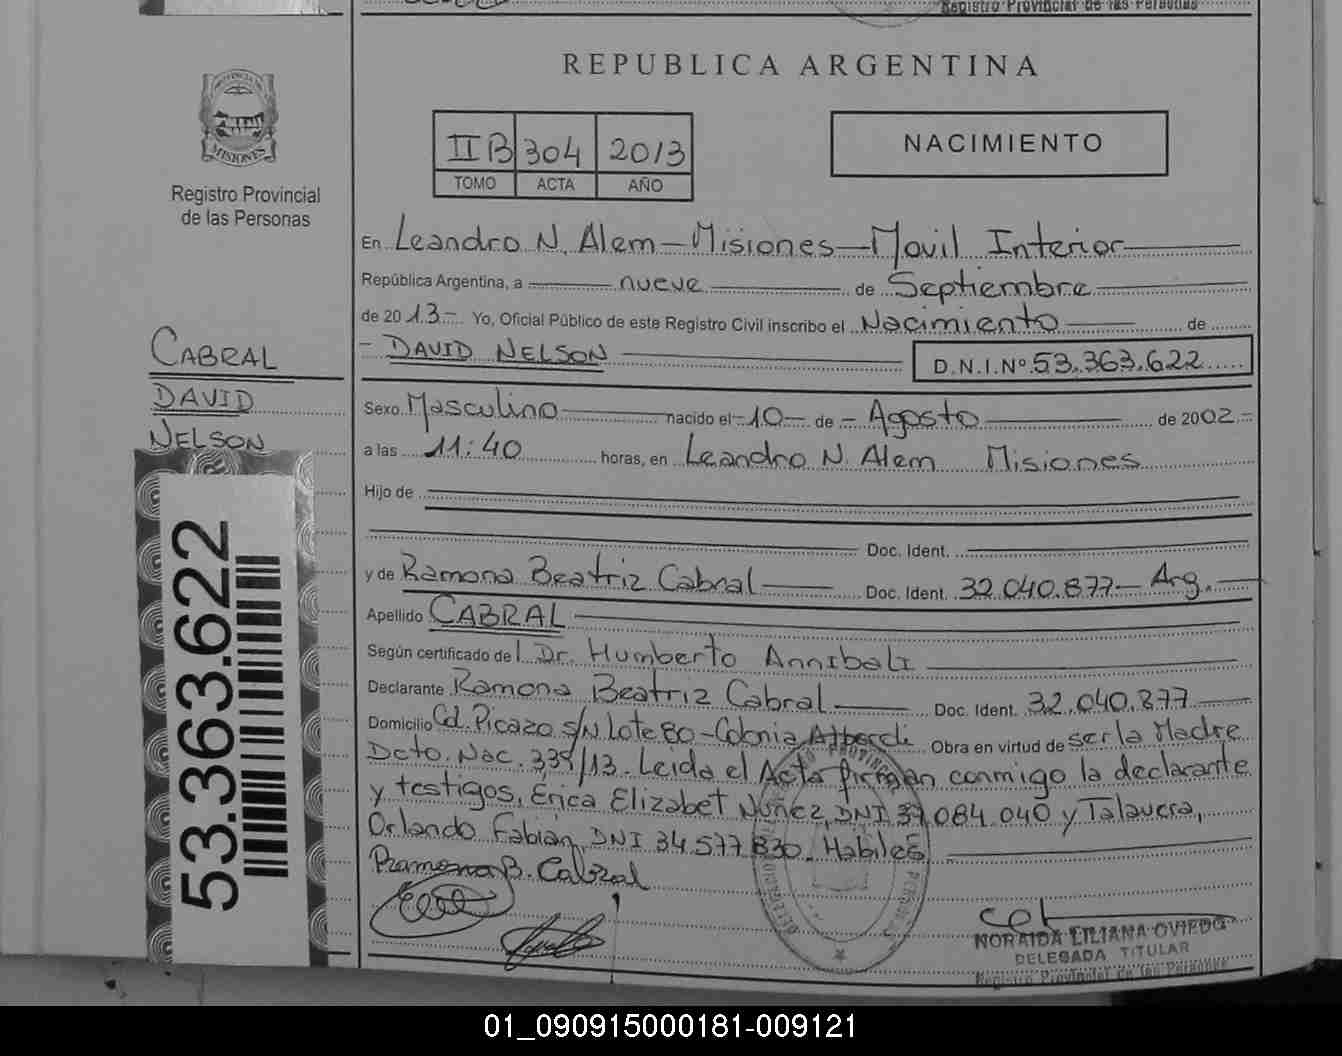 Registro Provincial de las Personas
REPUBLICA ARGENTINA
PROVINCIA DE
MISIONES
Registro Provincial
de las Personas
II B 304 2013
TOMO ACTA AÑO
NACIMIENTO
En Leandro N. Alem - Misiones - Movil Interior
República Argentina, a nueve de Septiembre
de 2013 - Yo, Oficial Público de este Registro Civil inscribo el Nacimiento de
- DAVID NELSON D.N.I.Nº 53.363.622
CABRAL
DAVID
NELSON
Sexo Masculino nacido el - 10 - de - Agosto de 2002 -
a las 11:40 horas, en Leandro N. Alem Misiones
Hijo de
Doc. Ident.
y de Ramona Beatriz Cabral Doc. Ident. 32.040.877 - Arg.
Apellido CABRAL
Según certificado de Dr. Humberto Annibali
Declarante Ramona Beatriz Cabral Doc. Ident. 32.040.877
Domicilio Cd. Picazo s/N Lote 80 - Colonia Alberdi Obra en virtud de ser la Madre
Dcto. Nac. 339/13. Leida el Acta firman conmigo la declarante
y testigos, Erica Elizabet Nuñez, DNI 37.084.040 y Talavera,
Orlando Fabián, DNI 34.577.830. Habiles
Ramona B. Cabral
NORAIDA LILIANA OVIEDO
DELEGADA TITULAR
Registro Provincial de las Personas
53.363.622
01_090915000181-009121